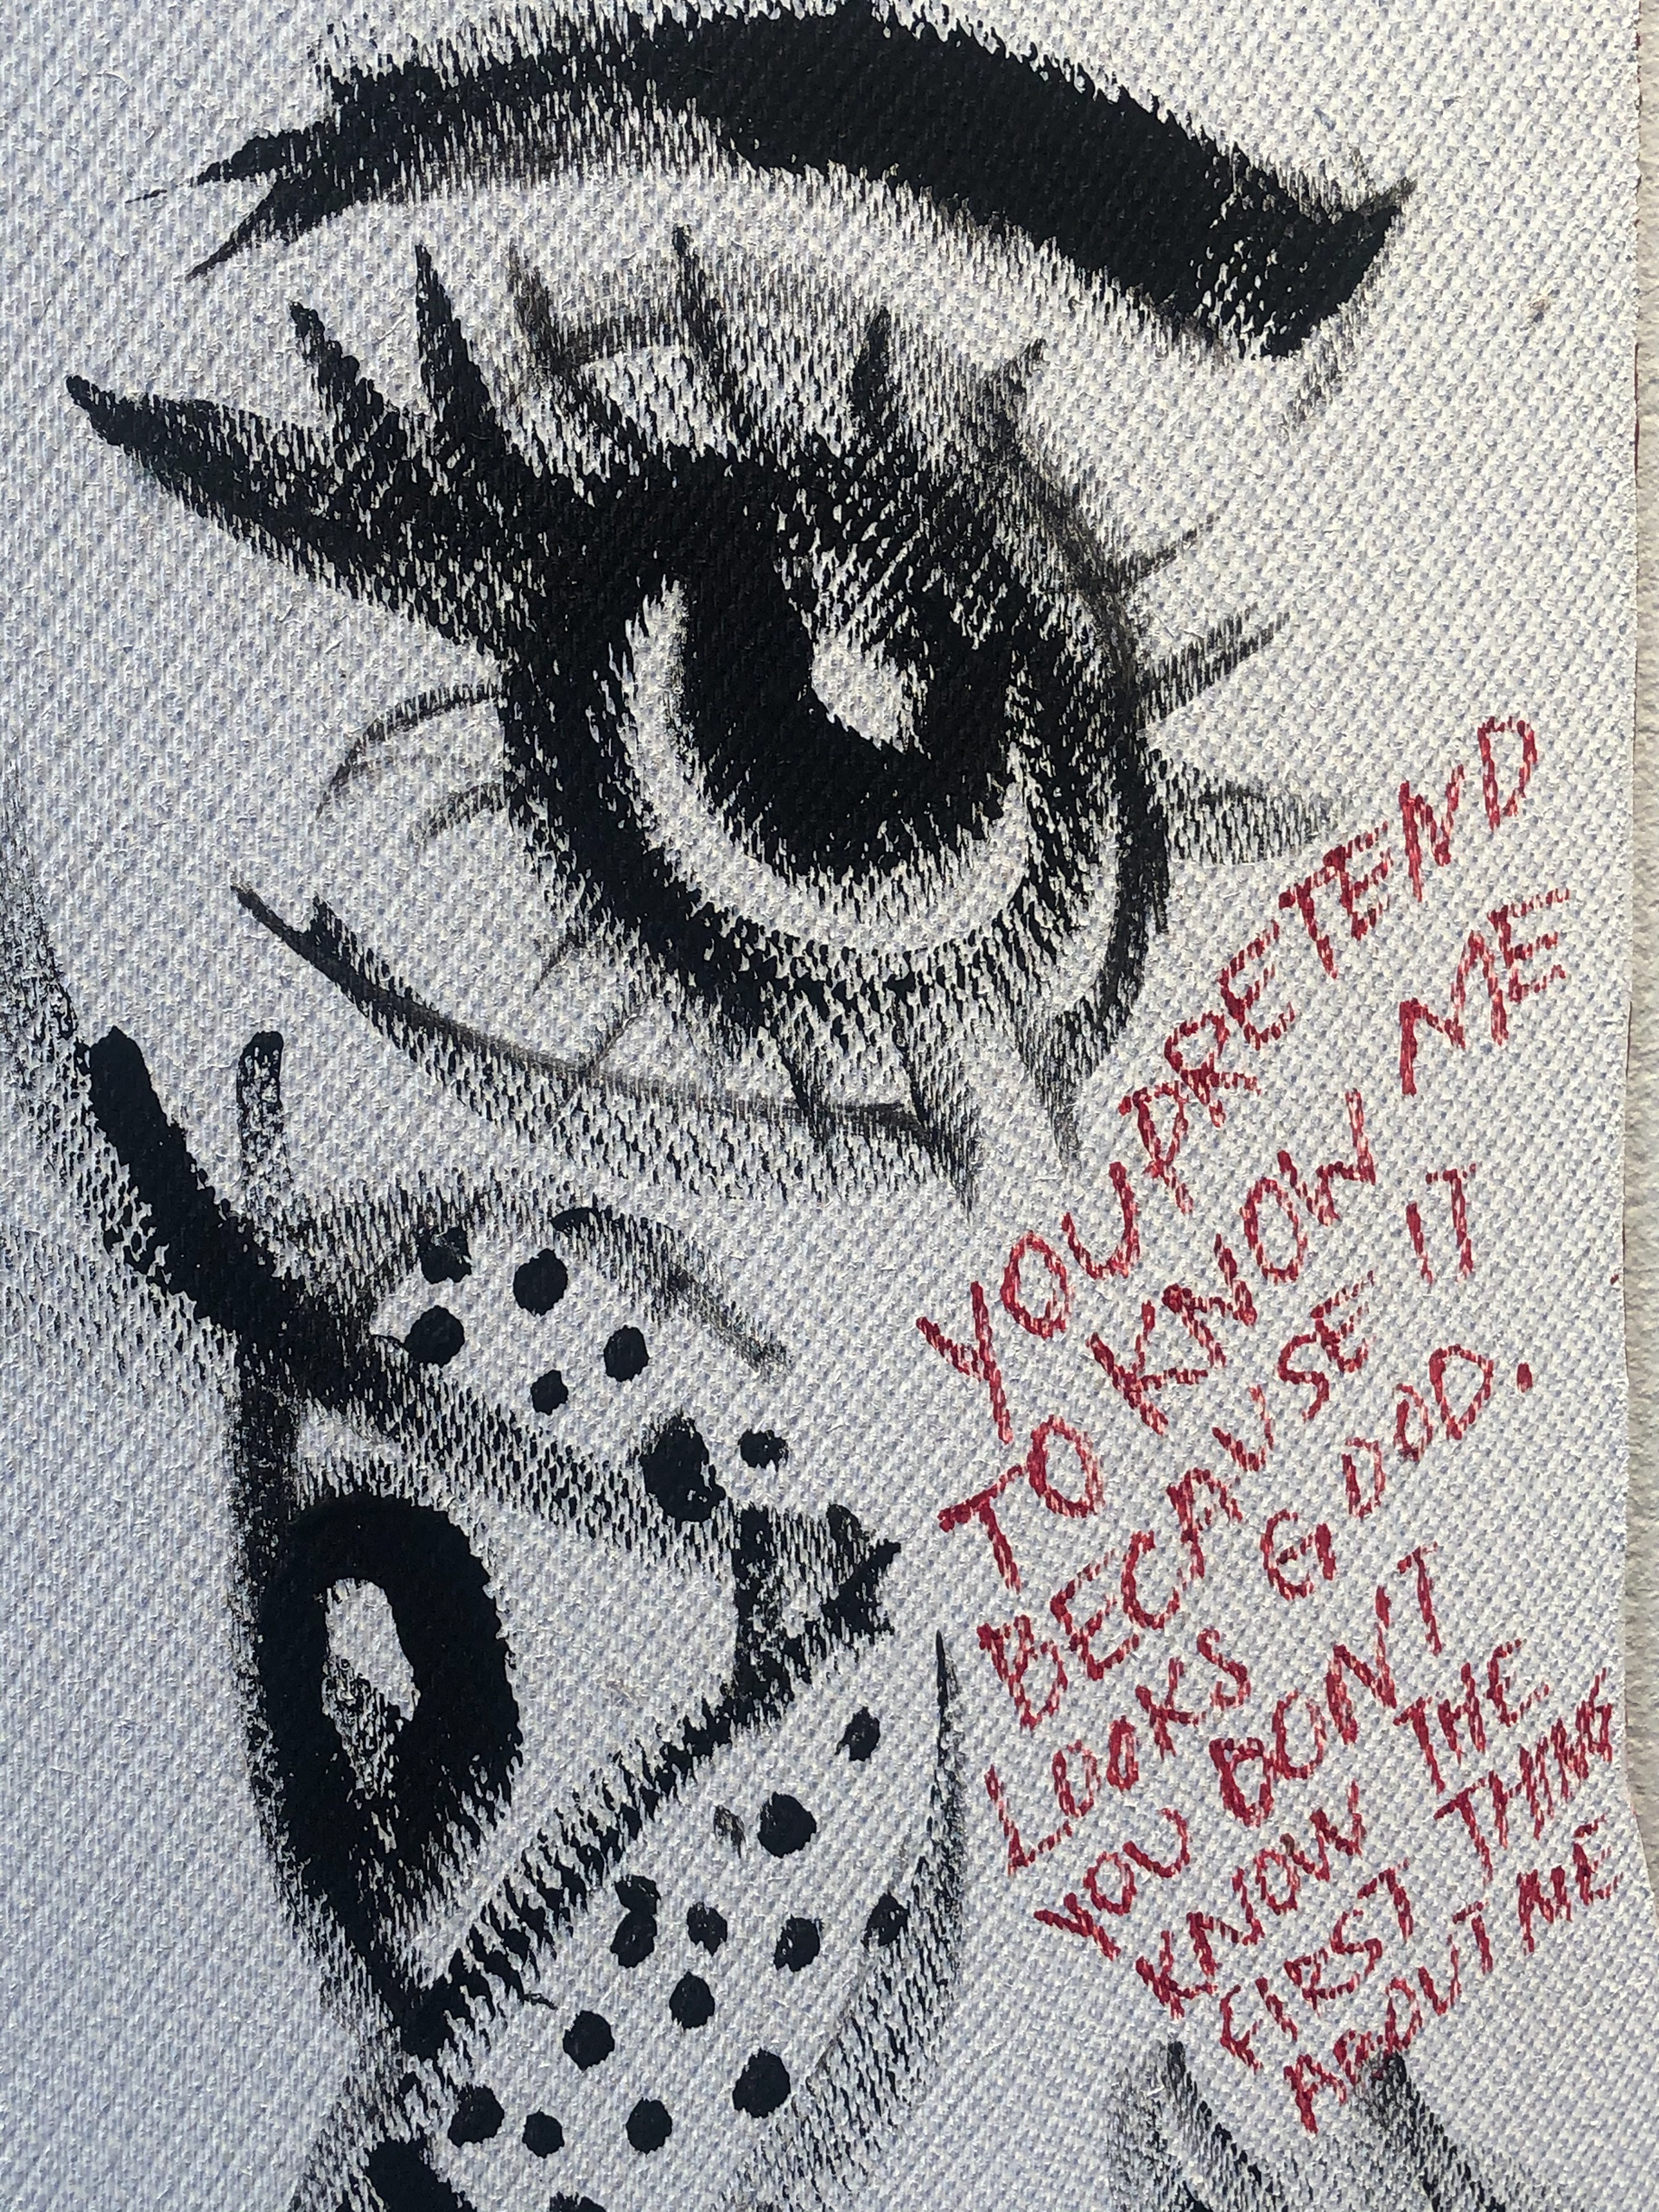 YOU PRETEND
TO KNOW ME
BECAUSE IT
LOOKS GOOD.
YOU DON'T
KNOW THE
FIRST THING
ABOUT ME